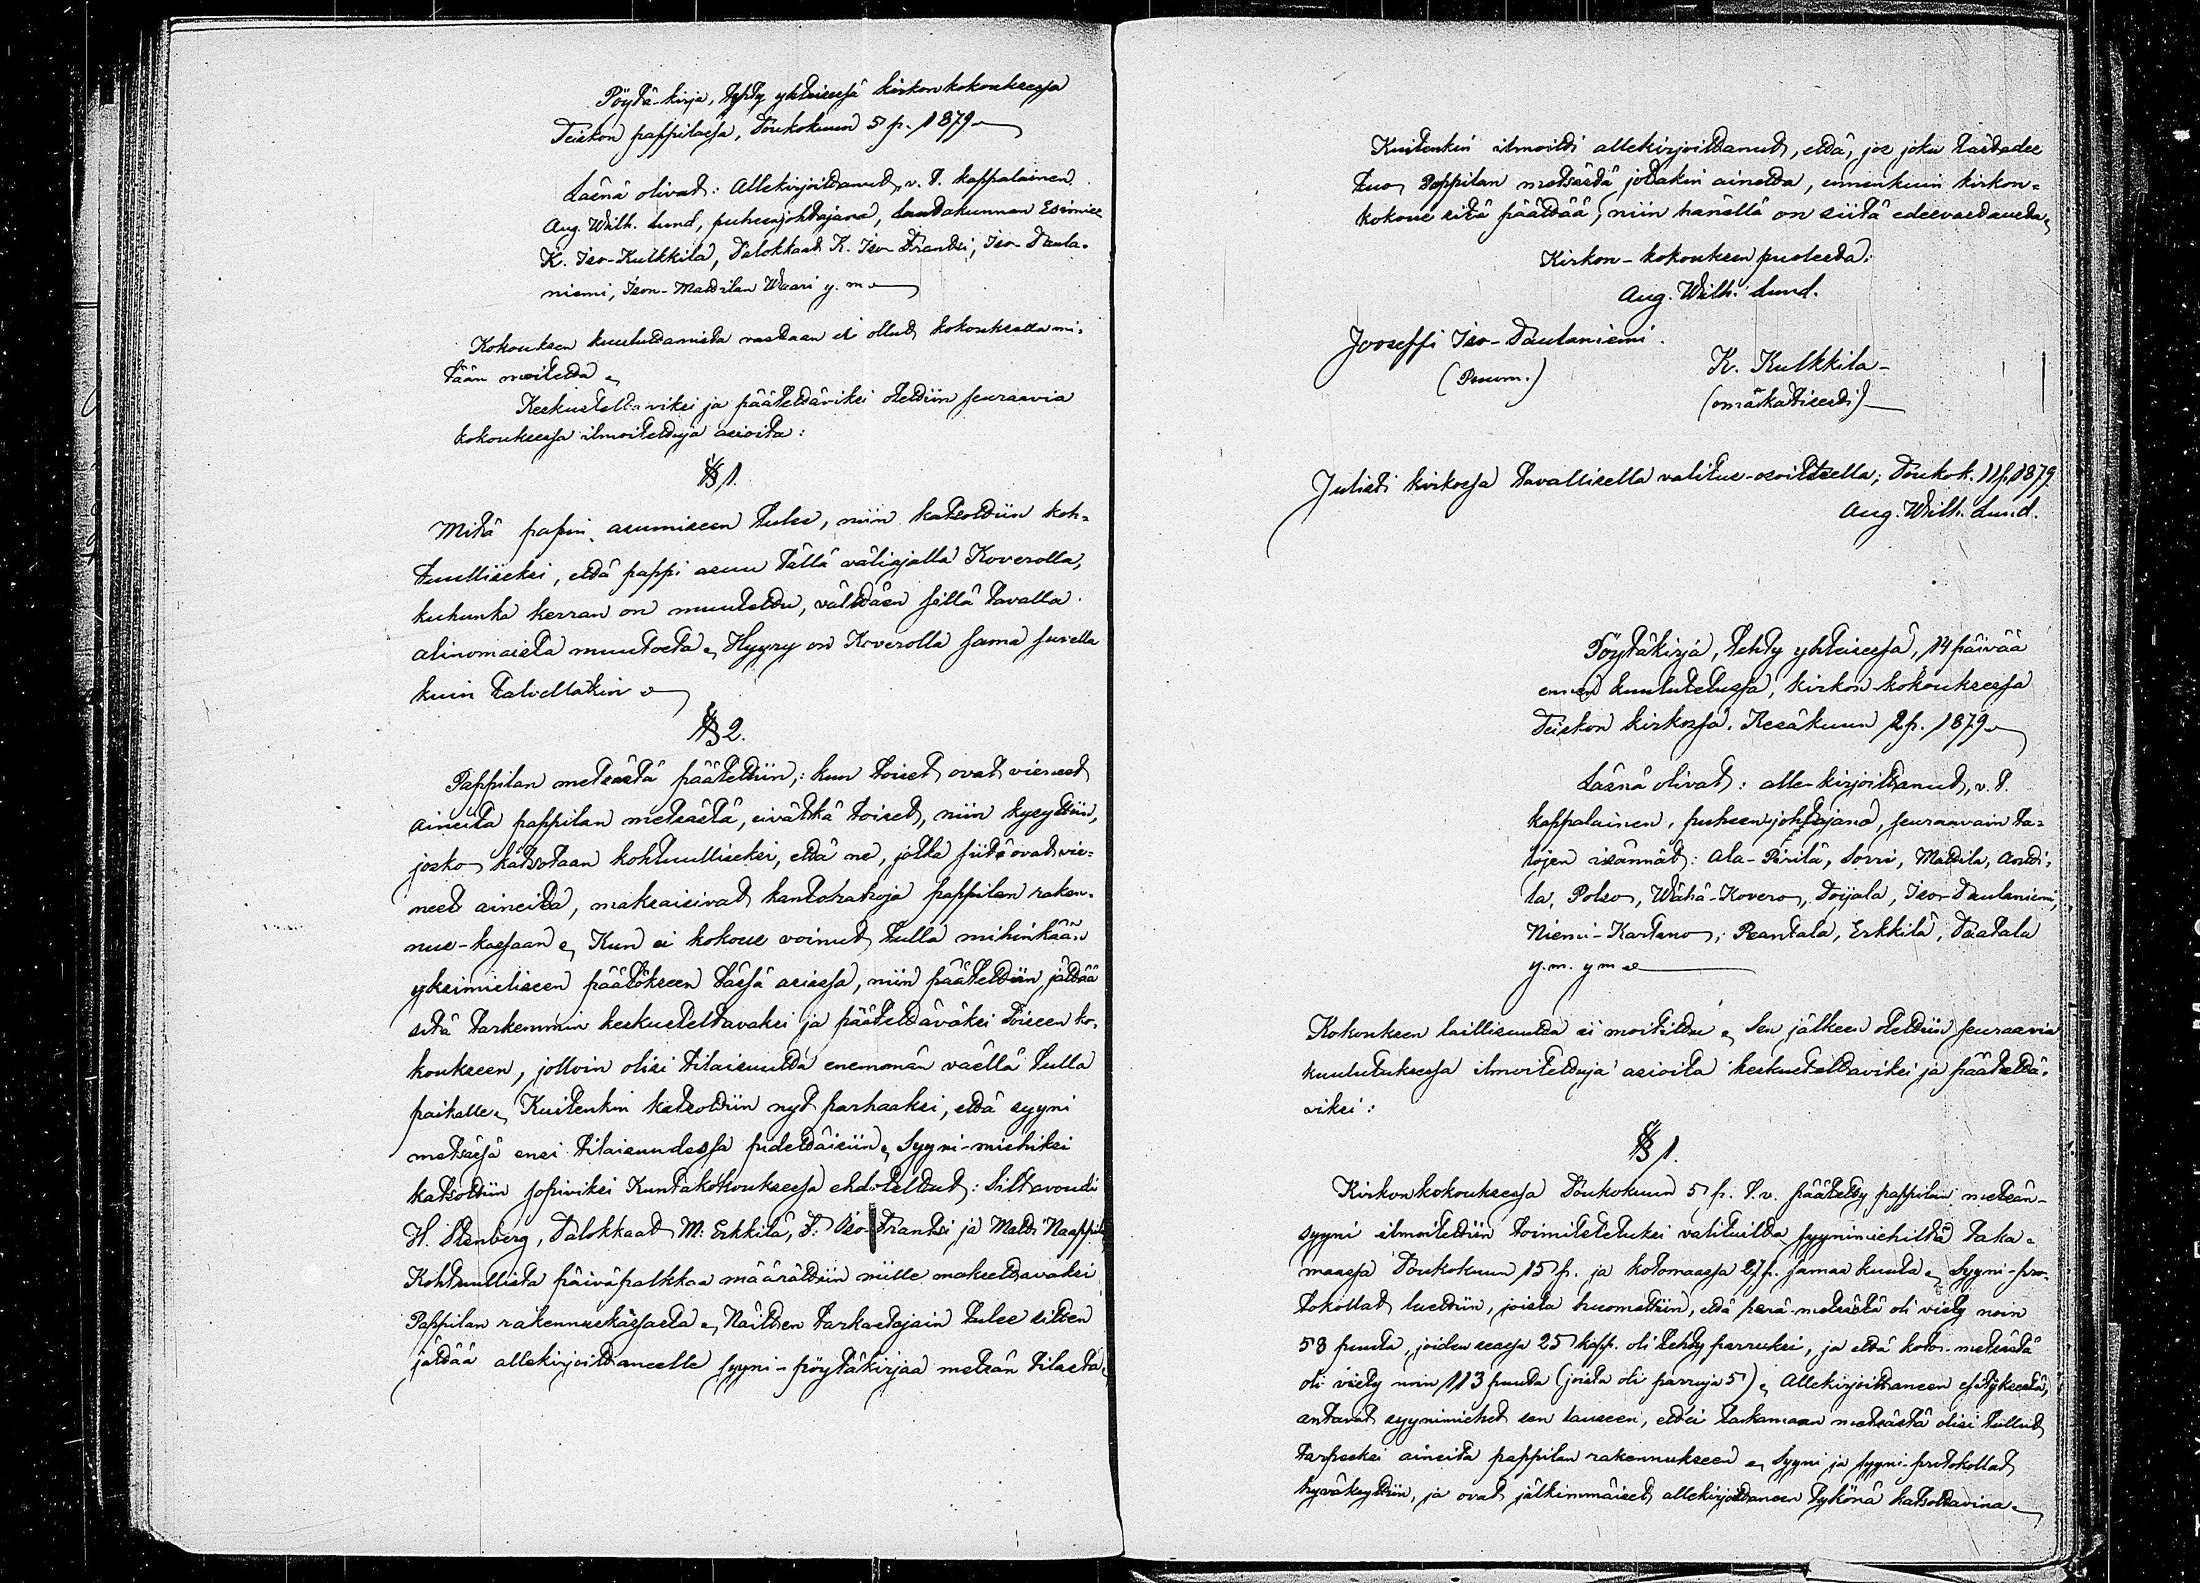 Pöytä-kirja, tehty yhteisessä kirkonkokouksessa
Teiskon pappilassa, Toukokuun 5 p. 1879.
Läsnä olivat: Allekirjoittanut, v. t. kappalainen
Aug. Wilh. Lund, puheenjohtajana, lautakunnan Esimies
K. Iso-Kulkkila, Talokkaat K. Iso-Frantsi, Iso-Taula-
niemi, Ison-Mattilan Waari y. m.
Kokouksen kuuluttamista vastaan ei ollut kokouksella mi-
tään moitetta.
Keskusteltaviksi ja päätettäviksi otettiin seuraavia
kokouksessa ilmoitettuja asioita:
§ 1.
Mitä papin asumiseen tulee, niin katsottiin koh-
tuulliseksi, että pappi asuu tällä väliajalla Koverolla,
kuhunka kerran on muutettu, välttäen sillä tavalla
alinomaista muutosta. Hyyry on Koverolla sama suvella
kuin talvellakin.
§ 2.
Pappilan metsästä päätettiin: kun toiset ovat vieneet
aineita pappilan metsästä, eivätkä toiset, niin kysyttiin,
josko katsotaan kohtuulliseksi, että ne, jotka siitä ovat vie-
neet aineita, maksaisivat kantorahoja pappilan raken-
nus-kassaan. Kun ei kokous voinut tulla mihinkään
yksimieliseen päätökseen tässä asiassa, niin päätettiin jättää
sitä tarkemmin keskusteltavaksi ja päätettäväksi toiseen ko-
koukseen, jolloin olisi tilaisuutta enemmän väellä tulla
paikalle. Kuitenkin katsottiin nyt parhaaksi, että syyni
metsässä ensi tilaisuudessa pidettäisiin. Syyni-miehiksi
katsottiin sopiviksi Kuntakokouksessa ehdotellut: Siltavouti
H. Stenberg, Talokkaat M. Erkkilä, F. Iso-Frantsi ja Matti Naappila
Kohtuullista päiväpalkkaa määrättiin niille maksettavaksi
Pappilan rakennuskassasta. Näitten tarkastajain tulee sitten
jättää allekirjoittaneelle syyni-pöytäkirjaa metsän tilasta.
Kuitenkin ilmoitti allekirjoittanut, että, jos joku tästedes
tuo Pappilan metsästä jotakin ainetta, ennenkuin kirkon-
kokous sitä päättää, niin hänellä on siitä edesvastausta.
Kirkon-kokouksen puolesta:
Aug. Wilh. Lund.
Jooseffi Iso-Taulaniemi.
(Puum.)
K. Kulkkila
(omakätisesti)
Julisti kirkossa tavallisella valitus-osoituksella; Toukok. 11 p. 1879
Aug. Wilh. Lund.
Pöytäkirja, tehty yhteisessä, 14 päivää
ennen kuulutetussa, kirkon-kokouksessa
Teiskon kirkossa, Kesäkuun 2 p. 1879.
Läsnä olivat: allekirjoittanut, v. t.
kappalainen, puheenjohtajana, seuraavain ta-
lojen isännät: Ala-Pirilä, Sorri, Mattila, Antti-
la, Polso, Wähä-Kovero, Toijala, Iso-Taulaniemi,
Niemi-Kartano, Rantala, Erkkilä, Taatala
y. m. y m.
Kokouksen laillisuutta ei moitittu. Sen jälkeen otettiin seuraavia
kuulutuksessa ilmoitettuja asioita keskusteltaviksi ja päätettä-
viksi:
§ 1.
Kirkonkokouksessa Toukokuun 5 p. t. v. päätetty pappilan metsän-
syyni ilmoitettiin toimitetuksi valituilta syynimiehiltä taka-
maassa Toukokuun 15 p. ja kotomaassa 27 p. samaa kuuta. Syyni-pro-
tokollat luettiin, joista huomattiin, että perä-metsästä oli viety noin
58 puuta, joiden seassa 25 kapp. oli tehty parruksi, ja että koto-metsästä
oli viety noin 113 puuta (joista oli parruja 5). Allekirjoittaneen esityksestä,
antavat syynimiehet sen lauseen, ettei takamaan metsästä olisi tullut
tarpeeksi aineita pappilan rakennukseen. Syyni ja syyni-protokollat
hyväksyttiin, ja ovat jälkimmäiset allekirjoittaneen tykönä katsottavina.